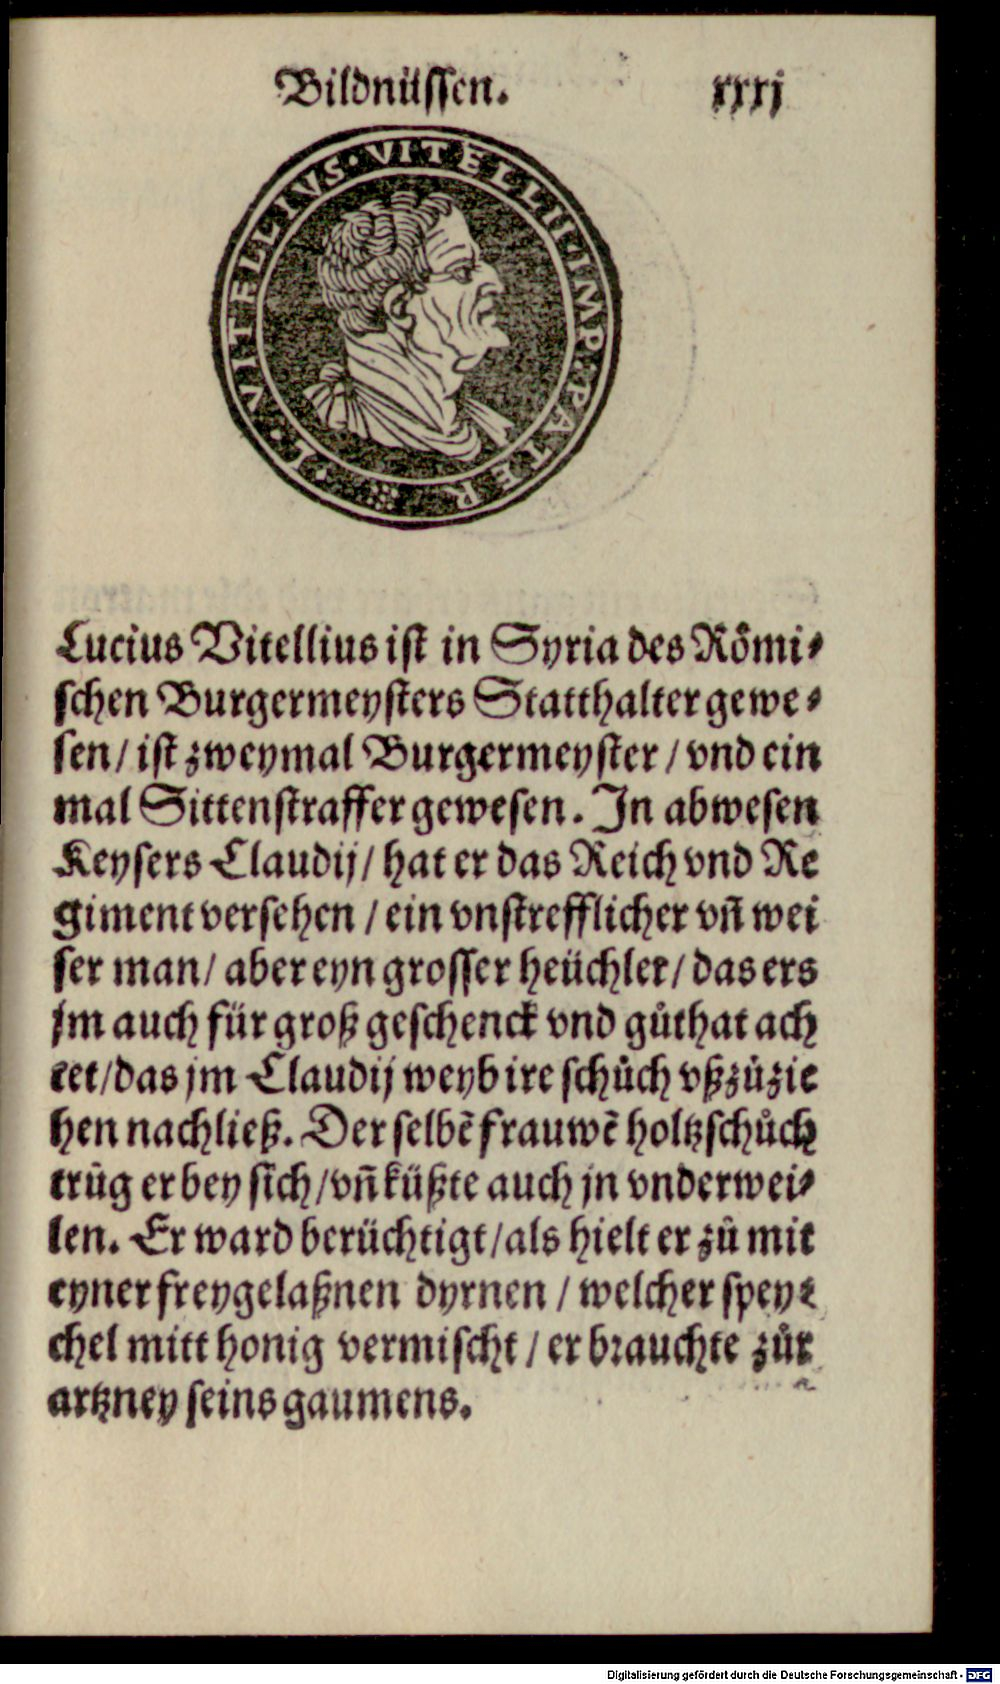 Bildnüssen. xxxj
L · VITELLIVS · VITELLII · IMP · PATER
Lucius Vitellius ist in Syria des Rômi⸗
schen Burgermeysters Statthalter gewe⸗
sen / ist zweymal Burgermeyster / vnd ein
mal Sittenstraffer gewesen. In abwesen
Keysers Claudij / hat er das Reich vnd Re
giment versehen / ein vnstrefflicher vñ wei
ser man / aber eyn grosser heüchler / das ers
jm auch für groß geschenck vnd gůthat ach
tet / das jm Claudij weyb ire schůch vßzůzie
hen nachließ. Der selbẽ frauwẽ holtzschůch
trůg er bey sich / vñ küßte auch jn vnderwei⸗
len. Er ward berüchtigt / als hielt er zů mit
eyner freygelaßnen dyrnen / welcher spey⸗
chel mitt honig vermischt / er brauchte zůr
artzney seins gaumens.
Digitalisierung gefördert durch die Deutsche Forschungsgemeinschaft - DFG